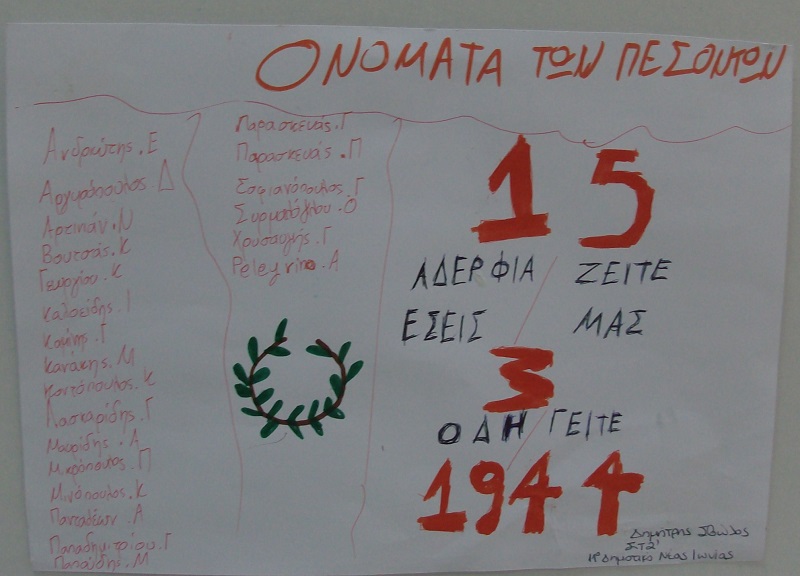 ΟΝΟΜΑΤΑ ΤΩΝ ΠΕΣΟΝΤΩΝ
Ανδριώτης. Ε
Αργυρόπουλος. Δ
Αρτινάν. Ν
Βουτσάς. Κ
Γεωργίου. Κ
Καλσείδης. Ι
Κομίνης. Γ
Κανάκης. Μ
Κοντόπουλος. Κ
Λασκαρίδης. Γ
Μαυρίδης. Λ
Μικρόπουλος. Π
Μινόπουλος. Κ
Πανταλέων. Α
Παπαδημητρίου. Γ
Παπαΐδης. Μ
Παρασκευάς. Γ
Παρασκευάς. Π
Σοφιανόπουλος. Γ
Συρμαλόγλου. Ο
Χρυσαυγής. Γ
Pelegrino. A
15
ΑΔΕΡΦΙΑ ΖΕΙΤΕ
ΕΣΕΙΣ ΜΑΣ
3
ΟΔΗΓΕΙΤΕ
1944
Δημήτρης
ΣΤ2'
Δημοτικό Νέας Ιωνίας